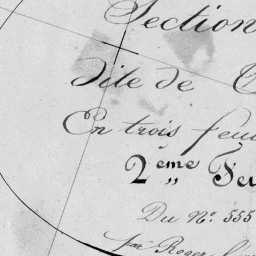 Section
Dite de
En trois feui
2ème Feu
Du N° 555